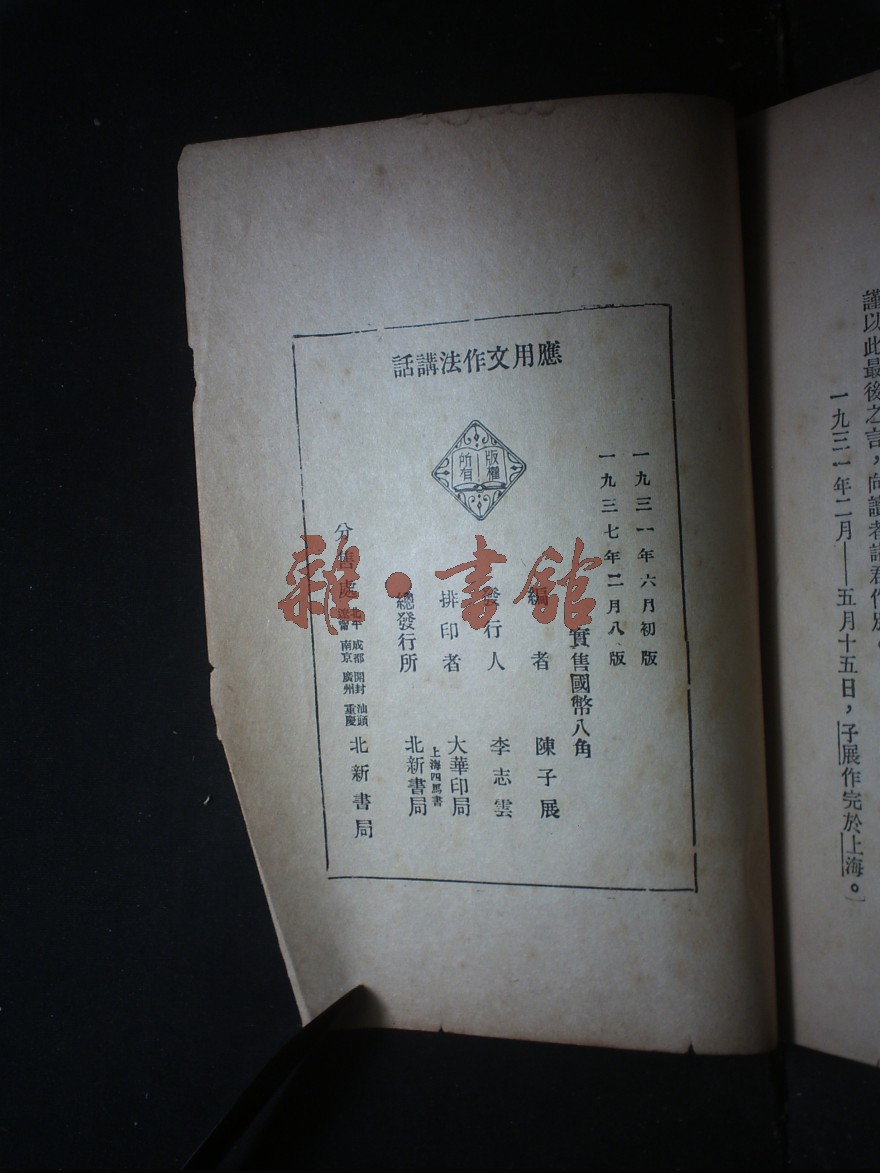 謹以此最後之言，向讀者諸君作別。
一九三一年二月——五月十五日，子展作完於上海。〕
應用文作法講話
版權
所有
一九三一年六月初版
一九三七年二月八版
實售國幣八角
編者 陳子展
發行人 李志雲
排印者 大華印局
總發行所 上海四馬書 北新書局
分售處 北平 成都 開封 汕頭 南京 廣州 重慶 北新書局
雜·書館